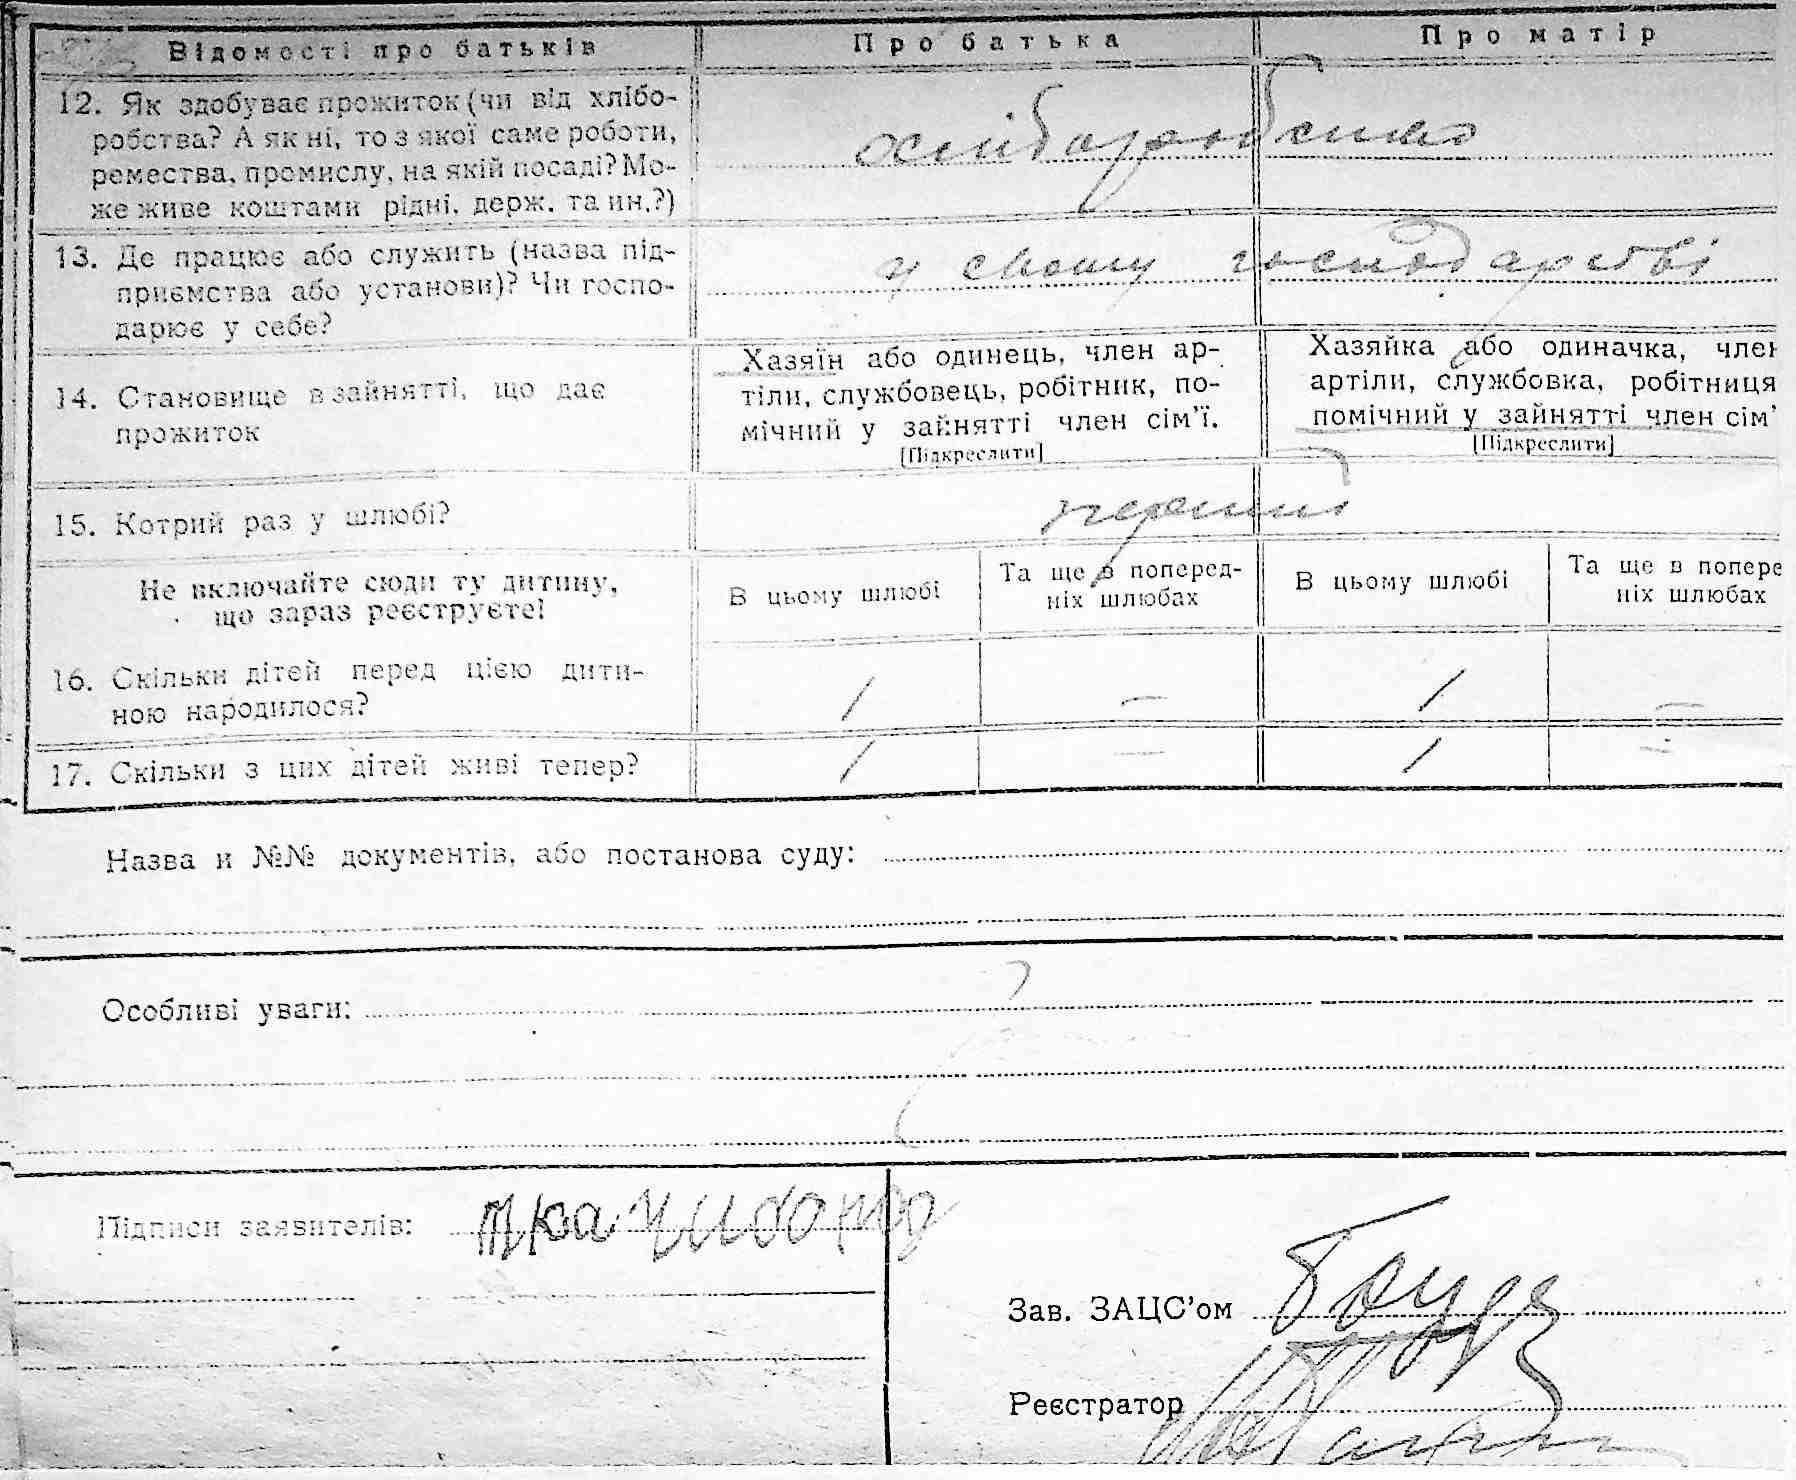 Відомості про батьків
Про батька
Про матір
12. Як здобуває прожиток (чи від хлібо-
робства? А як ні, то з якої саме роботи,
ремества, промислу, на якій посаді? Мо-
же живе коштами рідні, держ. та ин.?)
хліборобство
13. Де працює або служить (назва під-
приємства або установи)? Чи госпо-
дарює у себе?
у свому господарстві
14. Становище в зайнятті, що дає
прожиток
Хазяїн або одинець, член ар-
тіли, службовець, робітник, по-
мічний у зайнятті член сім’ї.
[Підкреслити]
Хазяйка або одиначка, член
артіли, службовка, робітниця
помічний у зайнятті член сім’
[Підкреслити]
15. Котрий раз у шлюбі?
перший
Не включайте сюди ту дитину,
що зараз реєструєте!
В цьому шлюбі
Та ще в поперед-
ніх шлюбах
В цьому шлюбі
Та ще в попере
ніх шлюбах
16. Скільки дітей перед цією дити-
ною народилося?
1 — 1 —
17. Скільки з цих дітей живі тепер?
1 — 1 —
Назва и №№ документів, або постанова суду:
Особливі уваги:
Підписи заявителів:
Зав. ЗАЦС’ом
Реєстратор